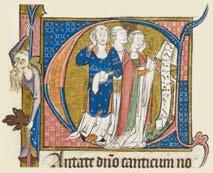 Cantate dño canticum no